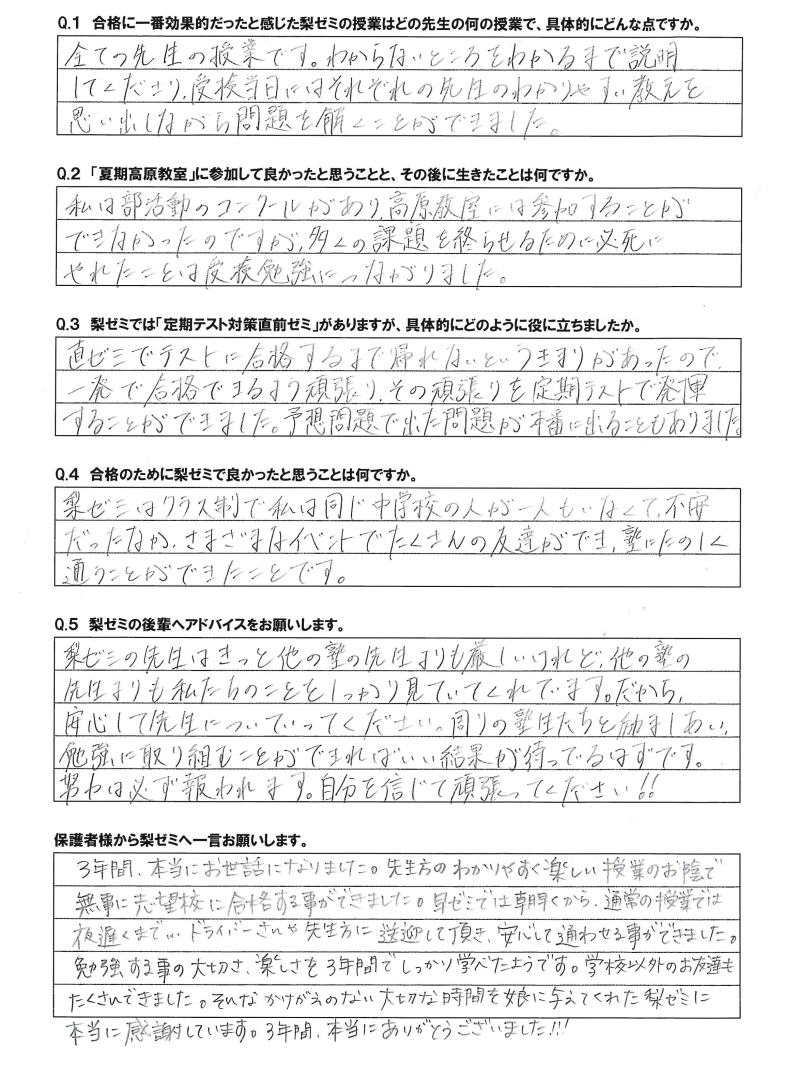 Q.1 合格に一番効果的だったと感じた梨ゼミの授業はどの先生の何の授業で、具体的にどんな点ですか。
全ての先生の授業です。わからないところをわかるまで説明
してくださり、受検当日にはそれぞれの先生のわかりやすい教えを
思い出しながら問題を解くことができました。
Q.2 「夏期高原教室」に参加して良かったと思うことと、その後に生きたことは何ですか。
私は部活動のコンクールがあり、高原教室には参加することが
できなかったのですが、多くの課題を終らせるために必死に
やれたことは受検勉強につながりました。
Q.3 梨ゼミでは「定期テスト対策直前ゼミ」がありますが、具体的にどのように役に立ちましたか。
直ゼミでテストに合格するまで帰れないというきまりがあったので、
一発で合格できるよう頑張り、その頑張りを定期テストで発揮
することができました。予想問題で出た問題が本番に出ることもありました。
Q.4 合格のために梨ゼミで良かったと思うことは何ですか。
梨ゼミはクラス制で私は同じ中学校の人が一人もいなくて、不安
だったなか、さまざまなイベントでたくさんの友達ができ、塾にたのしく
通うことができたことです。
Q.5 梨ゼミの後輩へアドバイスをお願いします。
梨ゼミの先生はきっと他の塾の先生よりも厳しいけれど、他の塾の
先生よりも私たちのことをしっかり見ていてくれています。だから、
安心して先生についていってください。周りの塾生たちと励ましあい、
勉強に取り組むことができればいい結果が待ってるはずです。
努力は必ず報われます。自分を信じて頑張ってください!!
保護者様から梨ゼミへ一言お願いします。
3年間、本当にお世話になりました。先生方のわかりやすく楽しい授業のお陰で
無事に志望校に合格する事ができました。早ゼミでは朝早くから、通常の授業では
夜遅くまで… ドライバーさんや先生方に送迎して頂き、安心して通わせる事ができました。
勉強する事の大切さ、楽しさを3年間でしっかり学べたようです。学校以外のお友達も
たくさんできました。そんなかけがえのない大切な時間を娘に与えてくれた梨ゼミに
本当に感謝しています。3年間、本当にありがとうございました!!!